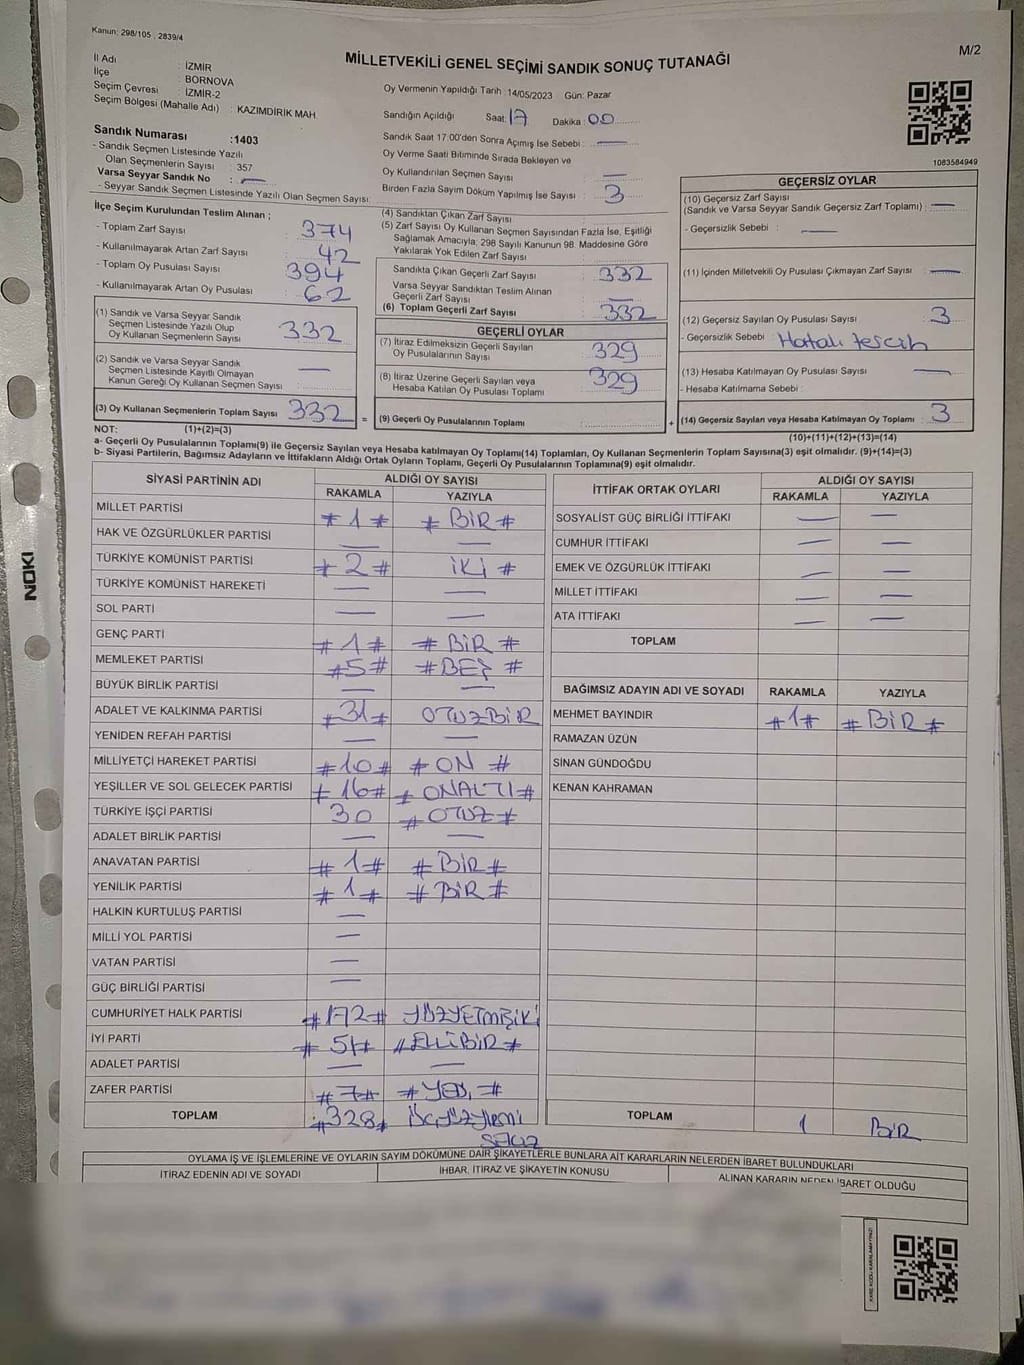 Kanun: 298/105 , 2839/4
M/2
MİLLETVEKİLİ GENEL SEÇİMİ SANDIK SONUÇ TUTANAĞI
İl Adı : İZMİR
İlçe : BORNOVA
Seçim Çevresi : İZMİR-2
Seçim Bölgesi (Mahalle Adı) : KAZIMDİRİK MAH
Sandık Numarası :1403
- Sandık Seçmen Listesinde Yazılı
Olan Seçmenlerin Sayısı : 357
Varsa Seyyar Sandık No : —
- Seyyar Sandık Seçmen Listesinde Yazılı Olan Seçmen Sayısı:
Oy Vermenin Yapıldığı Tarih :14/05/2023 Gün: Pazar
Sandığın Açıldığı Saat: 17 Dakika : 00
Sandık Saat 17:00'den Sonra Açımış İse Sebebi : —
Oy Verme Saati Bitiminde Sırada Bekleyen ve
Oy Kullandırılan Seçmen Sayısı : —
Birden Fazla Sayım Döküm Yapılmış İse Sayısı : 3
1083584949
İlçe Seçim Kurulundan Teslim Alınan ;
- Toplam Zarf Sayısı : 374
- Kullanılmayarak Artan Zarf Sayısı : 42
- Toplam Oy Pusulası Sayısı : 394
- Kullanılmayarak Artan Oy Pusulası : 62
(1) Sandık ve Varsa Seyyar Sandık
Seçmen Listesinde Yazılı Olup
Oy Kullanan Seçmenlerin Sayısı : 332
(2) Sandık ve Varsa Seyyar Sandık
Seçmen Listesinde Kayıtlı Olmayan
Kanun Gereği Oy Kullanan Seçmen Sayısı : —
(3) Oy Kullanan Seçmenlerin Toplam Sayısı : 332
(4) Sandıktan Çıkan Zarf Sayısı :
(5) Zarf Sayısı Oy Kullanan Seçmen Sayısından Fazla İse, Eşitliği
Sağlamak Amacıyla; 298 Sayılı Kanunun 98. Maddesine Göre
Yakılarak Yok Edilen Zarf Sayısı :
Sandıkta Çıkan Geçerli Zarf Sayısı : 332
Varsa Seyyar Sandıktan Teslim Alınan
Geçerli Zarf Sayısı : —
(6) Toplam Geçerli Zarf Sayısı : 332
GEÇERLİ OYLAR
(7) İtiraz Edilmeksizin Geçerli Sayılan
Oy Pusulalarının Sayısı : 329
(8) İtiraz Üzerine Geçerli Sayılan veya
Hesaba Katılan Oy Pusulası Toplamı : 329
= (9) Geçerli Oy Pusulalarının Toplamı : +
GEÇERSİZ OYLAR
(10) Geçersiz Zarf Sayısı
(Sandık ve Varsa Seyyar Sandık Geçersiz Zarf Toplamı) : —
- Geçersizlik Sebebi : —
(11) İçinden Milletvekili Oy Pusulası Çıkmayan Zarf Sayısı : —
(12) Geçersiz Sayılan Oy Pusulası Sayısı : 3
- Geçersizlik Sebebi : Hatalı tercih
(13) Hesaba Katılmayan Oy Pusulası Sayısı : —
- Hesaba Katılmama Sebebi :
(14) Geçersiz Sayılan veya Hesaba Katılmayan Oy Toplamı : 3
NOT: (1)+(2)=(3) (10)+(11)+(12)+(13)=(14)
a- Geçerli Oy Pusulalarının Toplamı(9) ile Geçersiz Sayılan veya Hesaba katılmayan Oy Toplamı(14) Toplamları, Oy Kullanan Seçmenlerin Toplam Sayısına(3) eşit olmalıdır. (9)+(14)=(3)
b- Siyasi Partilerin, Bağımsız Adayların ve İttifakların Aldığı Ortak Oyların Toplamı, Geçerli Oy Pusulalarının Toplamına(9) eşit olmalıdır.
SİYASİ PARTİNİN ADI ALDIĞI OY SAYISI
RAKAMLA YAZIYLA
MİLLET PARTİSİ #1# #BİR#
HAK VE ÖZGÜRLÜKLER PARTİSİ — —
TÜRKİYE KOMÜNİST PARTİSİ #2# İKİ #
TÜRKİYE KOMÜNİST HAREKETİ — —
SOL PARTİ — —
GENÇ PARTİ #1# #BİR#
MEMLEKET PARTİSİ #5# #BEŞ#
BÜYÜK BİRLİK PARTİSİ — —
ADALET VE KALKINMA PARTİSİ #31# OTUZBİR
YENİDEN REFAH PARTİSİ — —
MİLLİYETÇİ HAREKET PARTİSİ #10# #ON#
YEŞİLLER VE SOL GELECEK PARTİSİ #16# #ONALTI#
TÜRKİYE İŞÇİ PARTİSİ 30 #OTUZ#
ADALET BİRLİK PARTİSİ — —
ANAVATAN PARTİSİ #1# #BİR#
YENİLİK PARTİSİ #1# #BİR#
HALKIN KURTULUŞ PARTİSİ —
MİLLİ YOL PARTİSİ —
VATAN PARTİSİ —
GÜÇ BİRLİĞİ PARTİSİ —
CUMHURİYET HALK PARTİSİ #172# YÜZYETMİŞİKİ
İYİ PARTİ #51# #ELLİBİR#
ADALET PARTİSİ — —
ZAFER PARTİSİ #7# #YEDİ#
TOPLAM #328# ÜÇYÜZYİRMİ
SEKİZ
İTTİFAK ORTAK OYLARI ALDIĞI OY SAYISI
RAKAMLA YAZIYLA
SOSYALİST GÜÇ BİRLİĞİ İTTİFAKI — —
CUMHUR İTTİFAKI — —
EMEK VE ÖZGÜRLÜK İTTİFAKI — —
MİLLET İTTİFAKI — —
ATA İTTİFAKI — —
TOPLAM
BAĞIMSIZ ADAYIN ADI VE SOYADI RAKAMLA YAZIYLA
MEHMET BAYINDIR #1# #BİR#
RAMAZAN ÜZÜN
SİNAN GÜNDOĞDU
KENAN KAHRAMAN
TOPLAM 1 BİR
OYLAMA İŞ VE İŞLEMLERİNE VE OYLARIN SAYIM DÖKÜMÜNE DAİR ŞİKAYETLERLE BUNLARA AİT KARARLARIN NELERDEN İBARET BULUNDUKLARI
İTİRAZ EDENİN ADI VE SOYADI İHBAR, İTİRAZ VE ŞİKAYETİN KONUSU ALINAN KARARIN NEDEN İBARET OLDUĞU
NOKI